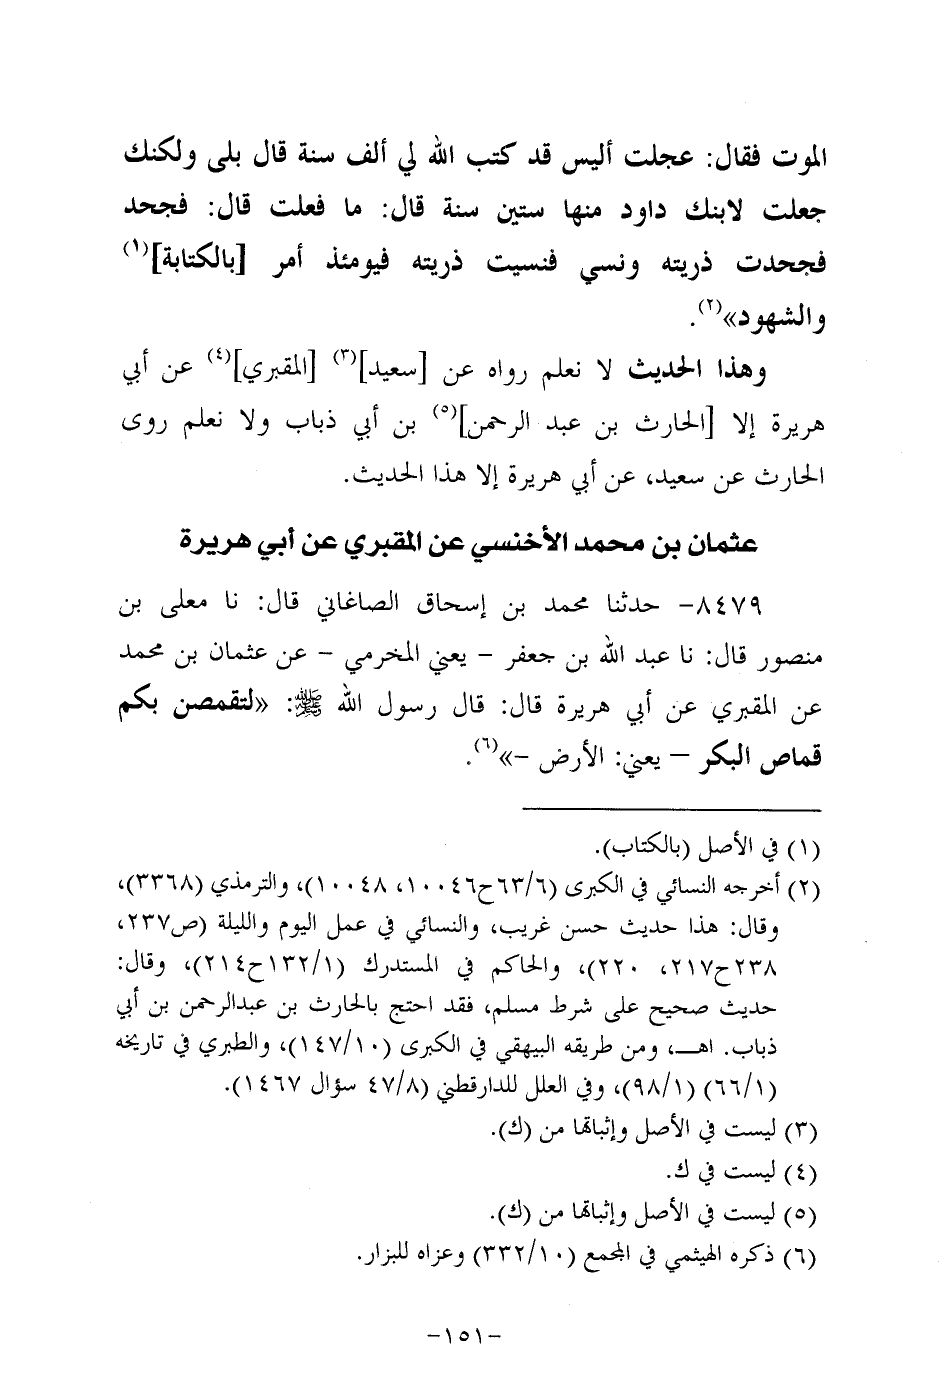 الموت فقال: عجلت أليس قد كتب الله لي ألف سنة قال بلى ولكنك
جعلت لابنك داود منها ستين سنة قال: ما فعلت قال: فجحد
فجحدت ذريته ونسي فنسيت ذريته فيومئذ أمر [بالكتابة](١)
والشهود»(٢).
وهذا الحديث لا نعلم رواه عن [سعيد](٣) [المقبري](٤) عن أبي
هريرة إلا [الحارث بن عبد الرحمن](٥) بن أبي ذباب ولا نعلم روى
الحارث عن سعيد، عن أبي هريرة إلا هذا الحديث.
عثمان بن محمد الأخنسي عن المقبري عن أبي هريرة
٨٤٧٩- حدثنا محمد بن إسحاق الصاغاني قال: نا معلى بن
منصور قال: نا عبد الله بن جعفر - يعني المخرمي - عن عثمان بن محمد
عن المقبري عن أبي هريرة قال: قال رسول الله ﷺ: «لتقمصن بكم
قماص البكر - يعني: الأرض -»(٦).
(١) في الأصل (بالكتاب).
(٢) أخرجه النسائي في الكبرى (٦٣/٦ح١٠٠٤٦، ١٠٠٤٨)، والترمذي (٣٣٦٨)،
وقال: هذا حديث حسن غريب، والنسائي في عمل اليوم والليلة (ص٢٣٧،
٢٣٨ح٢١٧، ٢٢٠)، والحاكم في المستدرك (١٣٢/١ح٢١٤)، وقال:
حديث صحيح على شرط مسلم، فقد احتج بالحارث بن عبدالرحمن بن أبي
ذباب. اهـ، ومن طريقه البيهقي في الكبرى (١٤٧/١٠)، والطبري في تاريخه
(٦٦/١) (٩٨/١)، وفي العلل للدارقطني (٤٧/٨ سؤال ١٤٦٧).
(٣) ليست في الأصل وإثباتها من (ك).
(٤) ليست في ك.
(٥) ليست في الأصل وإثباتها من (ك).
(٦) ذكره الهيثمي في المجمع (٣٣٢/١٠) وعزاه للبزار.
-١٥١-